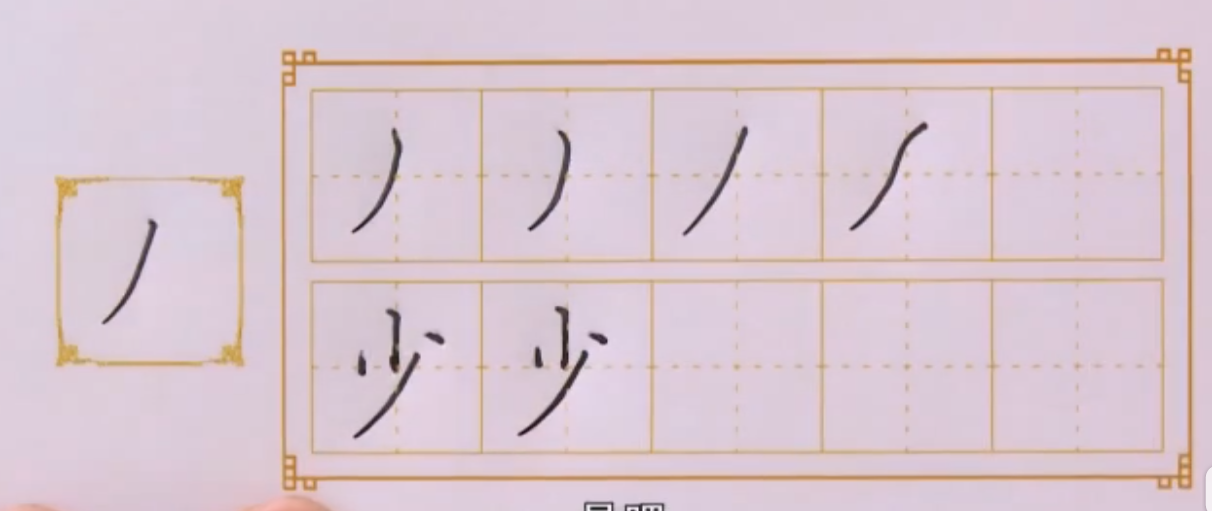 丿
丿 丿 丿 丿
少 少